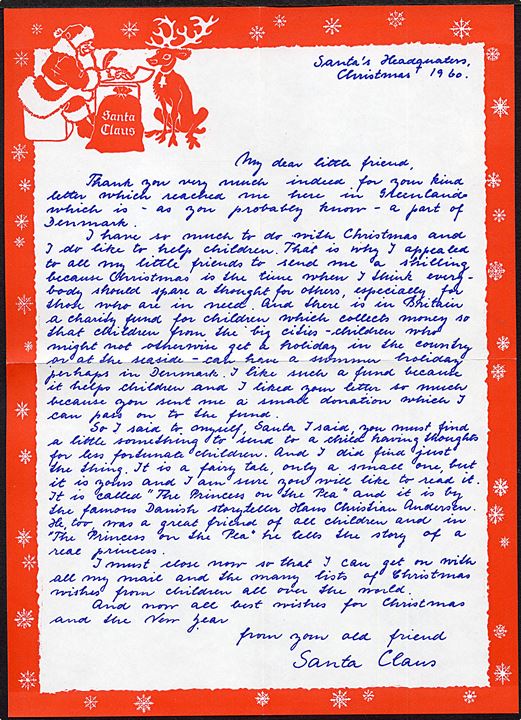 Santa
Claus
Santa's Headquaters,
Christmas 1960.
My dear little friend,
Thank you very much indeed for your kind
letter which reached me here in Greenland
which is - as you probably know - a part of
Denmark.
I have so much to do with Christmas and
I do like to help children. That is why I appealed
to all my little friends to send me a shilling
because Christmas is the time when I think every-
body should spare a thought for others, especially for
those who are in need. And there is in Britain
a charity fund for children which collects money so
that children from the big cities - children who
might not otherwise get a holiday in the country
or at the seaside - can have a summer holiday
perhaps in Denmark. I like such a fund because
it helps children and I liked your letter so much
because you sent me a small donation which I
can pass on to the fund.
So I said to myself, Santa I said, you must find
a little something to send to a child having thoughts
for less fortunate children. And I did find just
the thing. It is a fairy tale, only a small one, but
it is yours and I am sure you will like to read it.
It is called "The Princess on the Pea" and it is by
the famous Danish storyteller Hans Christian Andersen.
He, too, was a great friend of all children and in
"The Princess on the Pea" he tells the story of a
real princess.
I must close now so that I can get on with
all my mail and the many lists of Christmas
wishes from children all over the world.
And now all best wishes for Christmas
and the New Year
from your old friend
Santa Claus